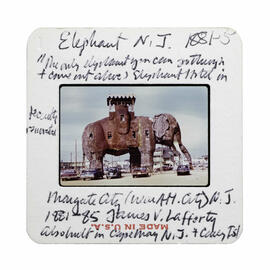 Elephant N.J. 1881-5
"The only elephant you can go through
& come out alive" Elephant Hotel in
recently
renovated
MADE IN U.S.A.
Margate City (near Atl. City) N.J.
1881-85 James V. Lafferty
also built in Cape May N.J. & Coney Isl